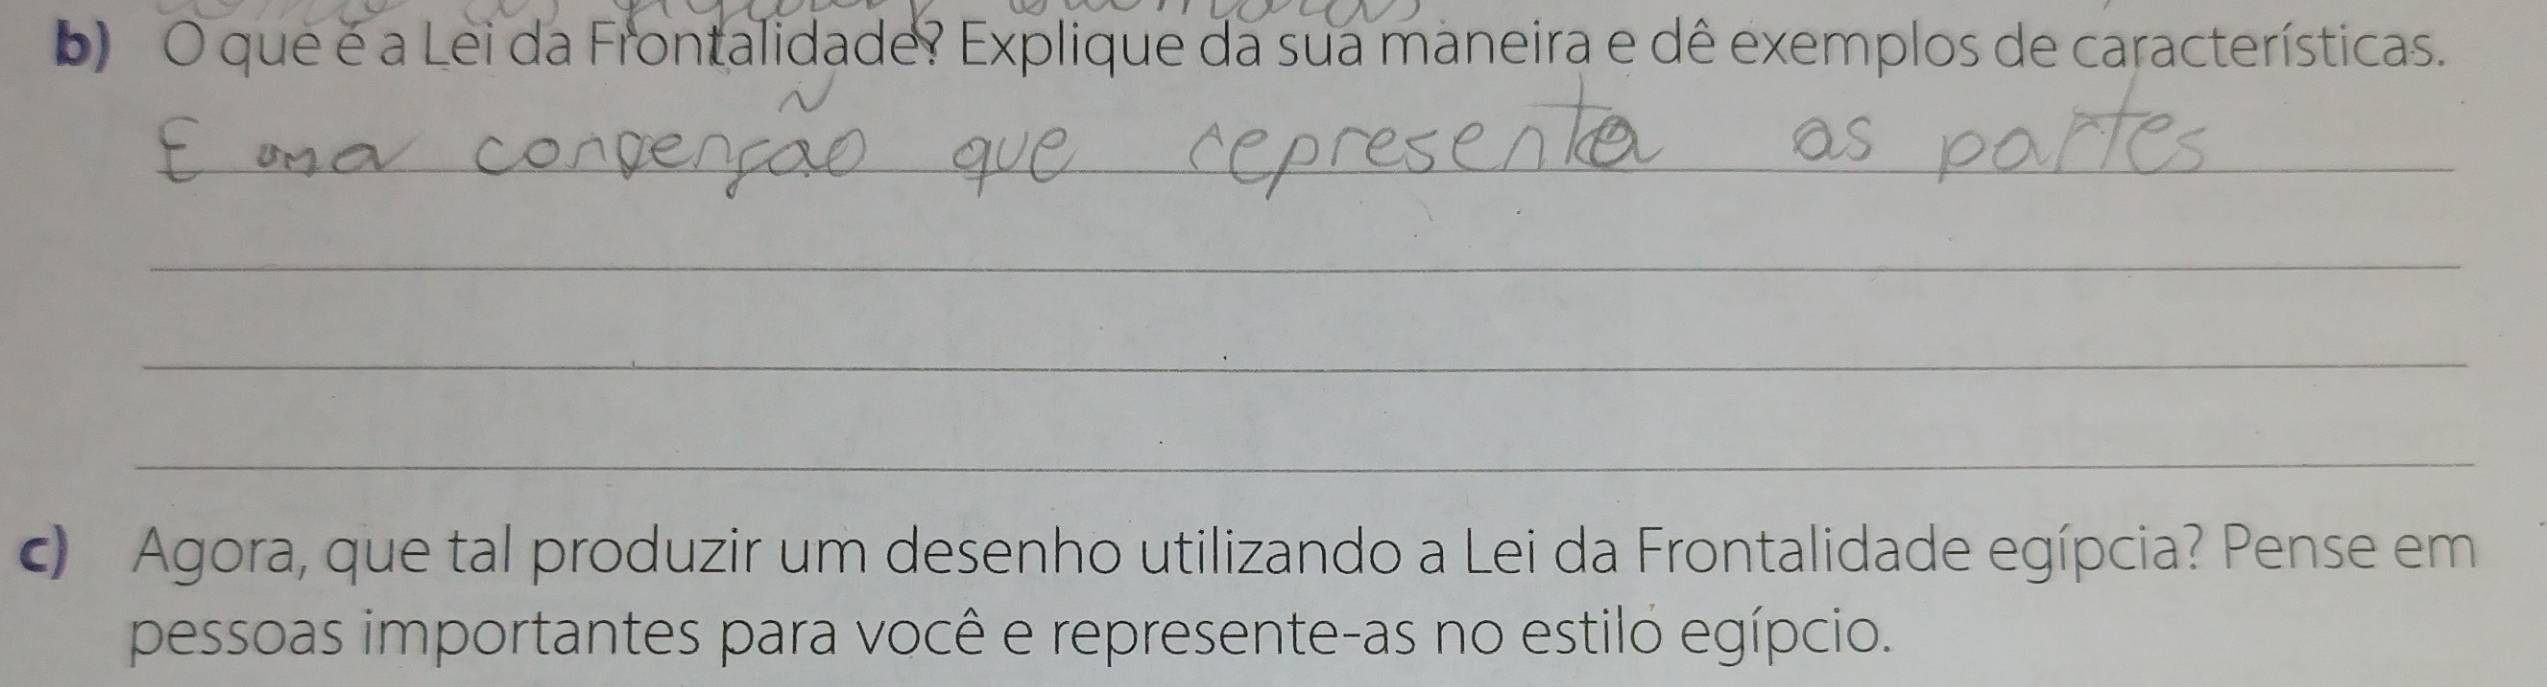 b) O que é a Lei da Frontalidade? Explique da sua maneira e dê exemplos de características.
E uma convenção que representa as partes
c) Agora, que tal produzir um desenho utilizando a Lei da Frontalidade egípcia? Pense em
pessoas importantes para você e represente-as no estilo egípcio.